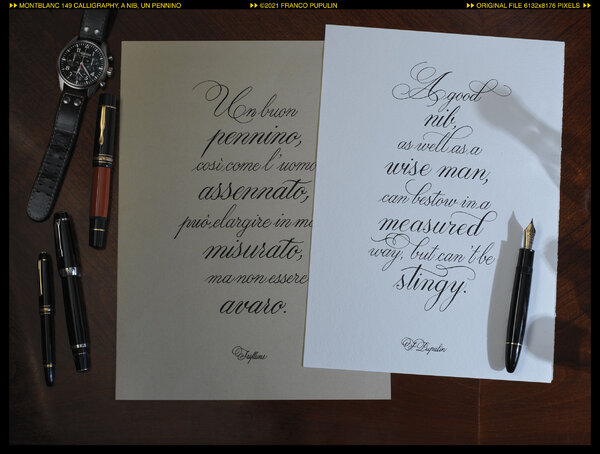 MONTBLANC 149 CALLIGRAPHY, A NIB, UN PENNINO
©2021 FRANCO PUPULIN
ORIGINAL FILE 6132x8176 PIXELS
Un buon
pennino,
così come l'uomo
assennato,
può elargire in m
misurato,
ma non essere
avaro.
A good
nib,
as well as a
wise man,
can bestow in a
measured
way, but can't be
stingy.
F. Pupulin